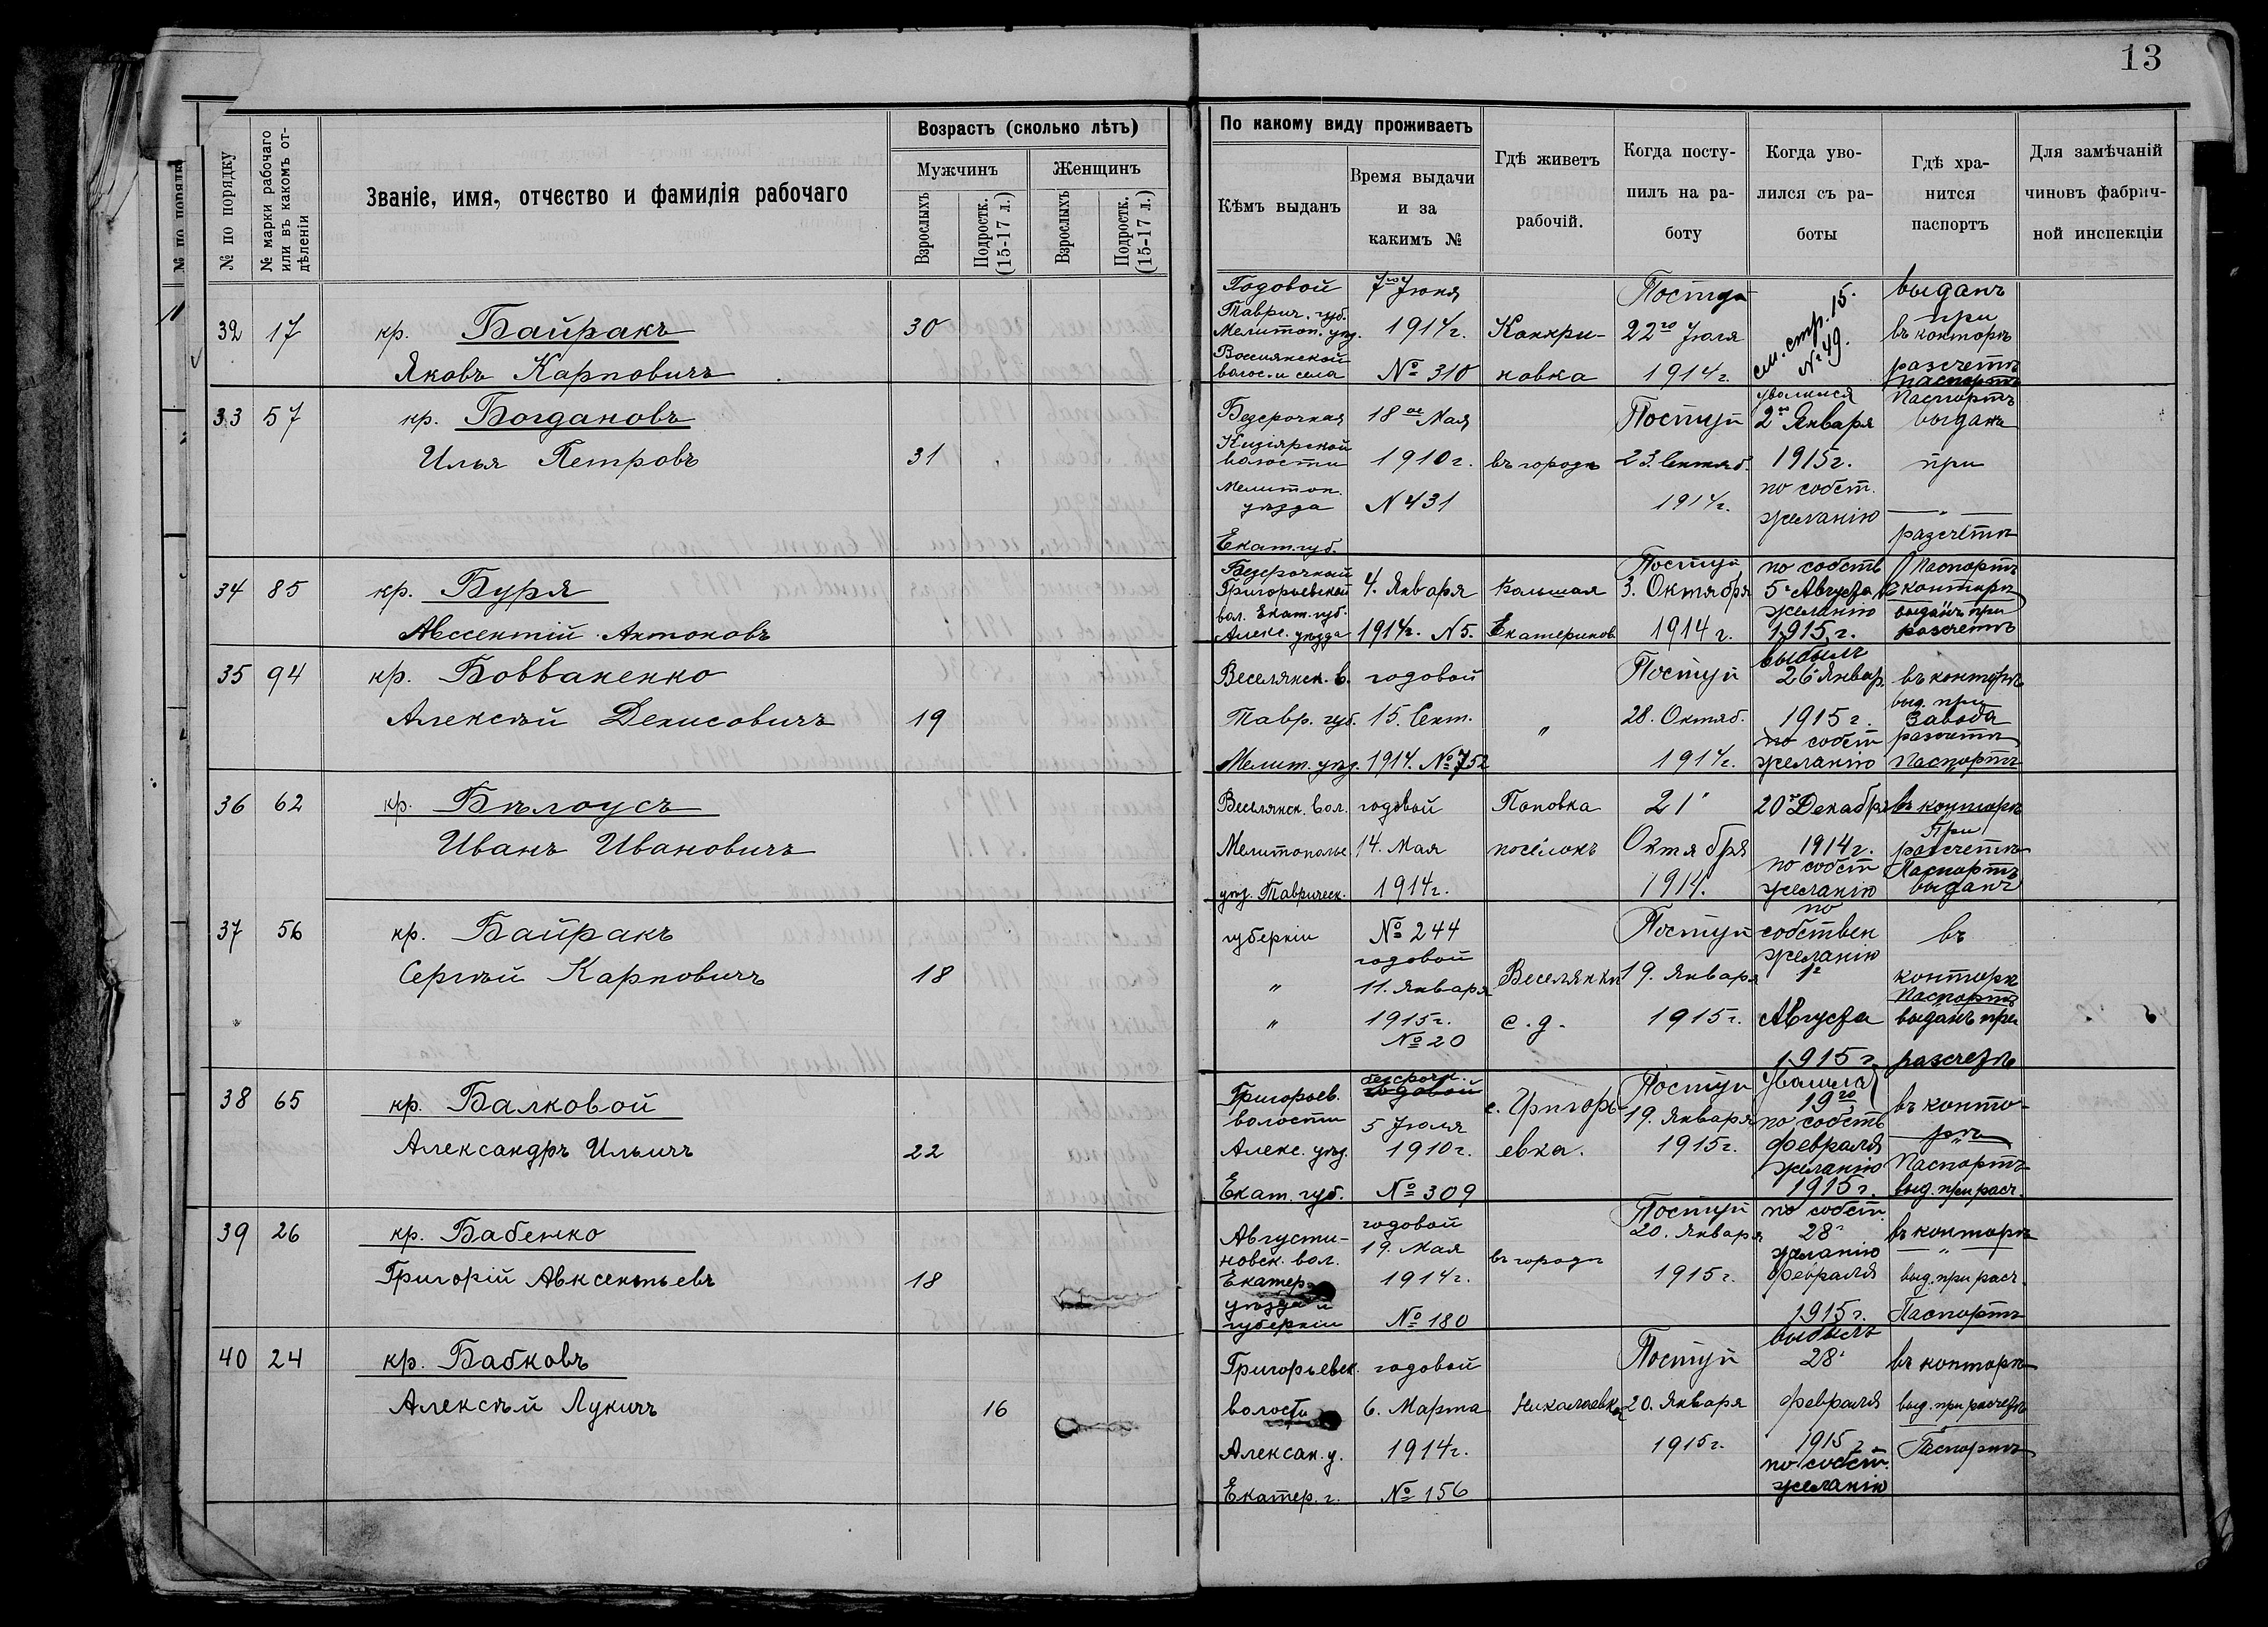 13
№ по порядку
№ по порядку
№ марки рабочаго или въ какомъ отдѣленіи
Званіе, имя, отчество и фамилія рабочаго
Возрастъ (сколько лѣтъ)
Мужчинъ
Женщинъ
Взрослыхъ
Подростк. (15-17 л.)
Взрослыхъ
Подростк. (15-17 л.)
По какому виду проживаетъ
Кѣмъ выданъ
Время выдачи
и за
какимъ №
Гдѣ живетъ
рабочій.
Когда посту-
пилъ на ра-
боту
Когда уво-
лился съ ра-
боты
Гдѣ хра-
нится
паспортъ
Для замѣчаній
чиновъ фабрич-
ной инспекціи
32 17 кр. Байракъ 30
Яковъ Карповичъ
Годовой
Таврич. губ.
Мелитоп. уѣзд.
волос. и села
7го Июня
1914г.
№ 310
Канкри-
новка
22го Июля
1914г.
см. стр. 15.
№ 49.
выданъ
при
въ конторѣ
разсчетѣ
паспортъ
33 57 кр. Богдановъ
Илья Петровъ 31
Безсрочная
Кизіярской
волости
Мелитоп.
уѣзда
18ое Мая
1910г.
N 431
въ городѣ
Поступ
23. Сентяб.
1914г.
уволился
2го Января
1915г.
по собст.
желанію
Паспортъ
выданъ
при
— " —
разсчетѣ
34 85 кр. Буря
Авссентій Антоновъ
Екат. губ.
Безсрочный
Григорьевской
вол. Екат. губ.
Алекс. уѣзда
4. Января
1914г. N 5.
Большая
Екатеринов
Поступ
3. Октября
1914 г.
по собств
5г Августа
желанію
1915. г.
Паспортъ
конторѣ
выданъ при
разсчетѣ
35 94 кр. Бовваненко
Алексѣй Денисовичъ 19
Веселянск. в.
Тавр. губ.
Мелит. уѣзд.
годовой
15. Сент.
1914. № 752
"
Поступ
28. Октяб.
1914г.
выбылъ
26г Январ.
1915 г.
по собст
желанію
въ конторѣ
выд. при
завода
разсчетѣ
Паспортъ
36 62 кр. Бѣлоусъ
Иванъ Ивановичъ
Веселянск. вол.
Мелитополь
уѣз. Тавричес.
губерніи
годовой
14. Мая
1914г.
№ 244
Поповка
посёлокъ
21
Октября
1914.
20го Декабря
1914г.
по собст
желанію
въ конторѣ
При
разсчетѣ
Паспортъ
выданъ
37 56 кр. Байракъ
Сергѣй Карповичъ 18
"
"
годовой
11. Января
1915г.
№ 20
Веселянки
с. д.
Поступ
19. Января
1915г.
по
собствен
желанію
1г
Августа
1915 г.
въ
конторѣ
Паспортъ
выданъ при
разсчетѣ
38 65 кр. Балковой
Александръ Ильичъ 22
Григорьев.
волости
Алекс. уѣзд.
Екат. губ.
безсрочн.
годовой
5 Июля
1910г.
№ 309
с. Григорь-
евка.
Поступ
19. Января
1915г.
19го
по собств
февраля
желанію
1915 г.
въ конто-
рѣ
Паспортъ
выд. при расч.
39 26 кр. Бабенко
Григорій Авксентьевъ 18
Августи-
новск. вол.
Екатер.
уѣзда и
губерніи
годовой
19. Мая
1914г.
№ 180
въ городѣ
Поступ
20. Января
1915г.
по собст
28г
желанію
февраля
1915г.
въ конторѣ
— " —
выд. при расч.
Паспортъ
40 24 кр. Бабковъ
Алексѣй Лукичъ 16
Григорьевск.
волости
Алексан. у.
Екатер. г.
годовой
6. Марта
1914г.
№ 156
Николаевка
Поступ
20. Января
1915г.
выбылъ
28г
февраля
1915 г.
по собст.
желанію
въ конторѣ
выд. при расчетѣ
Паспортъ